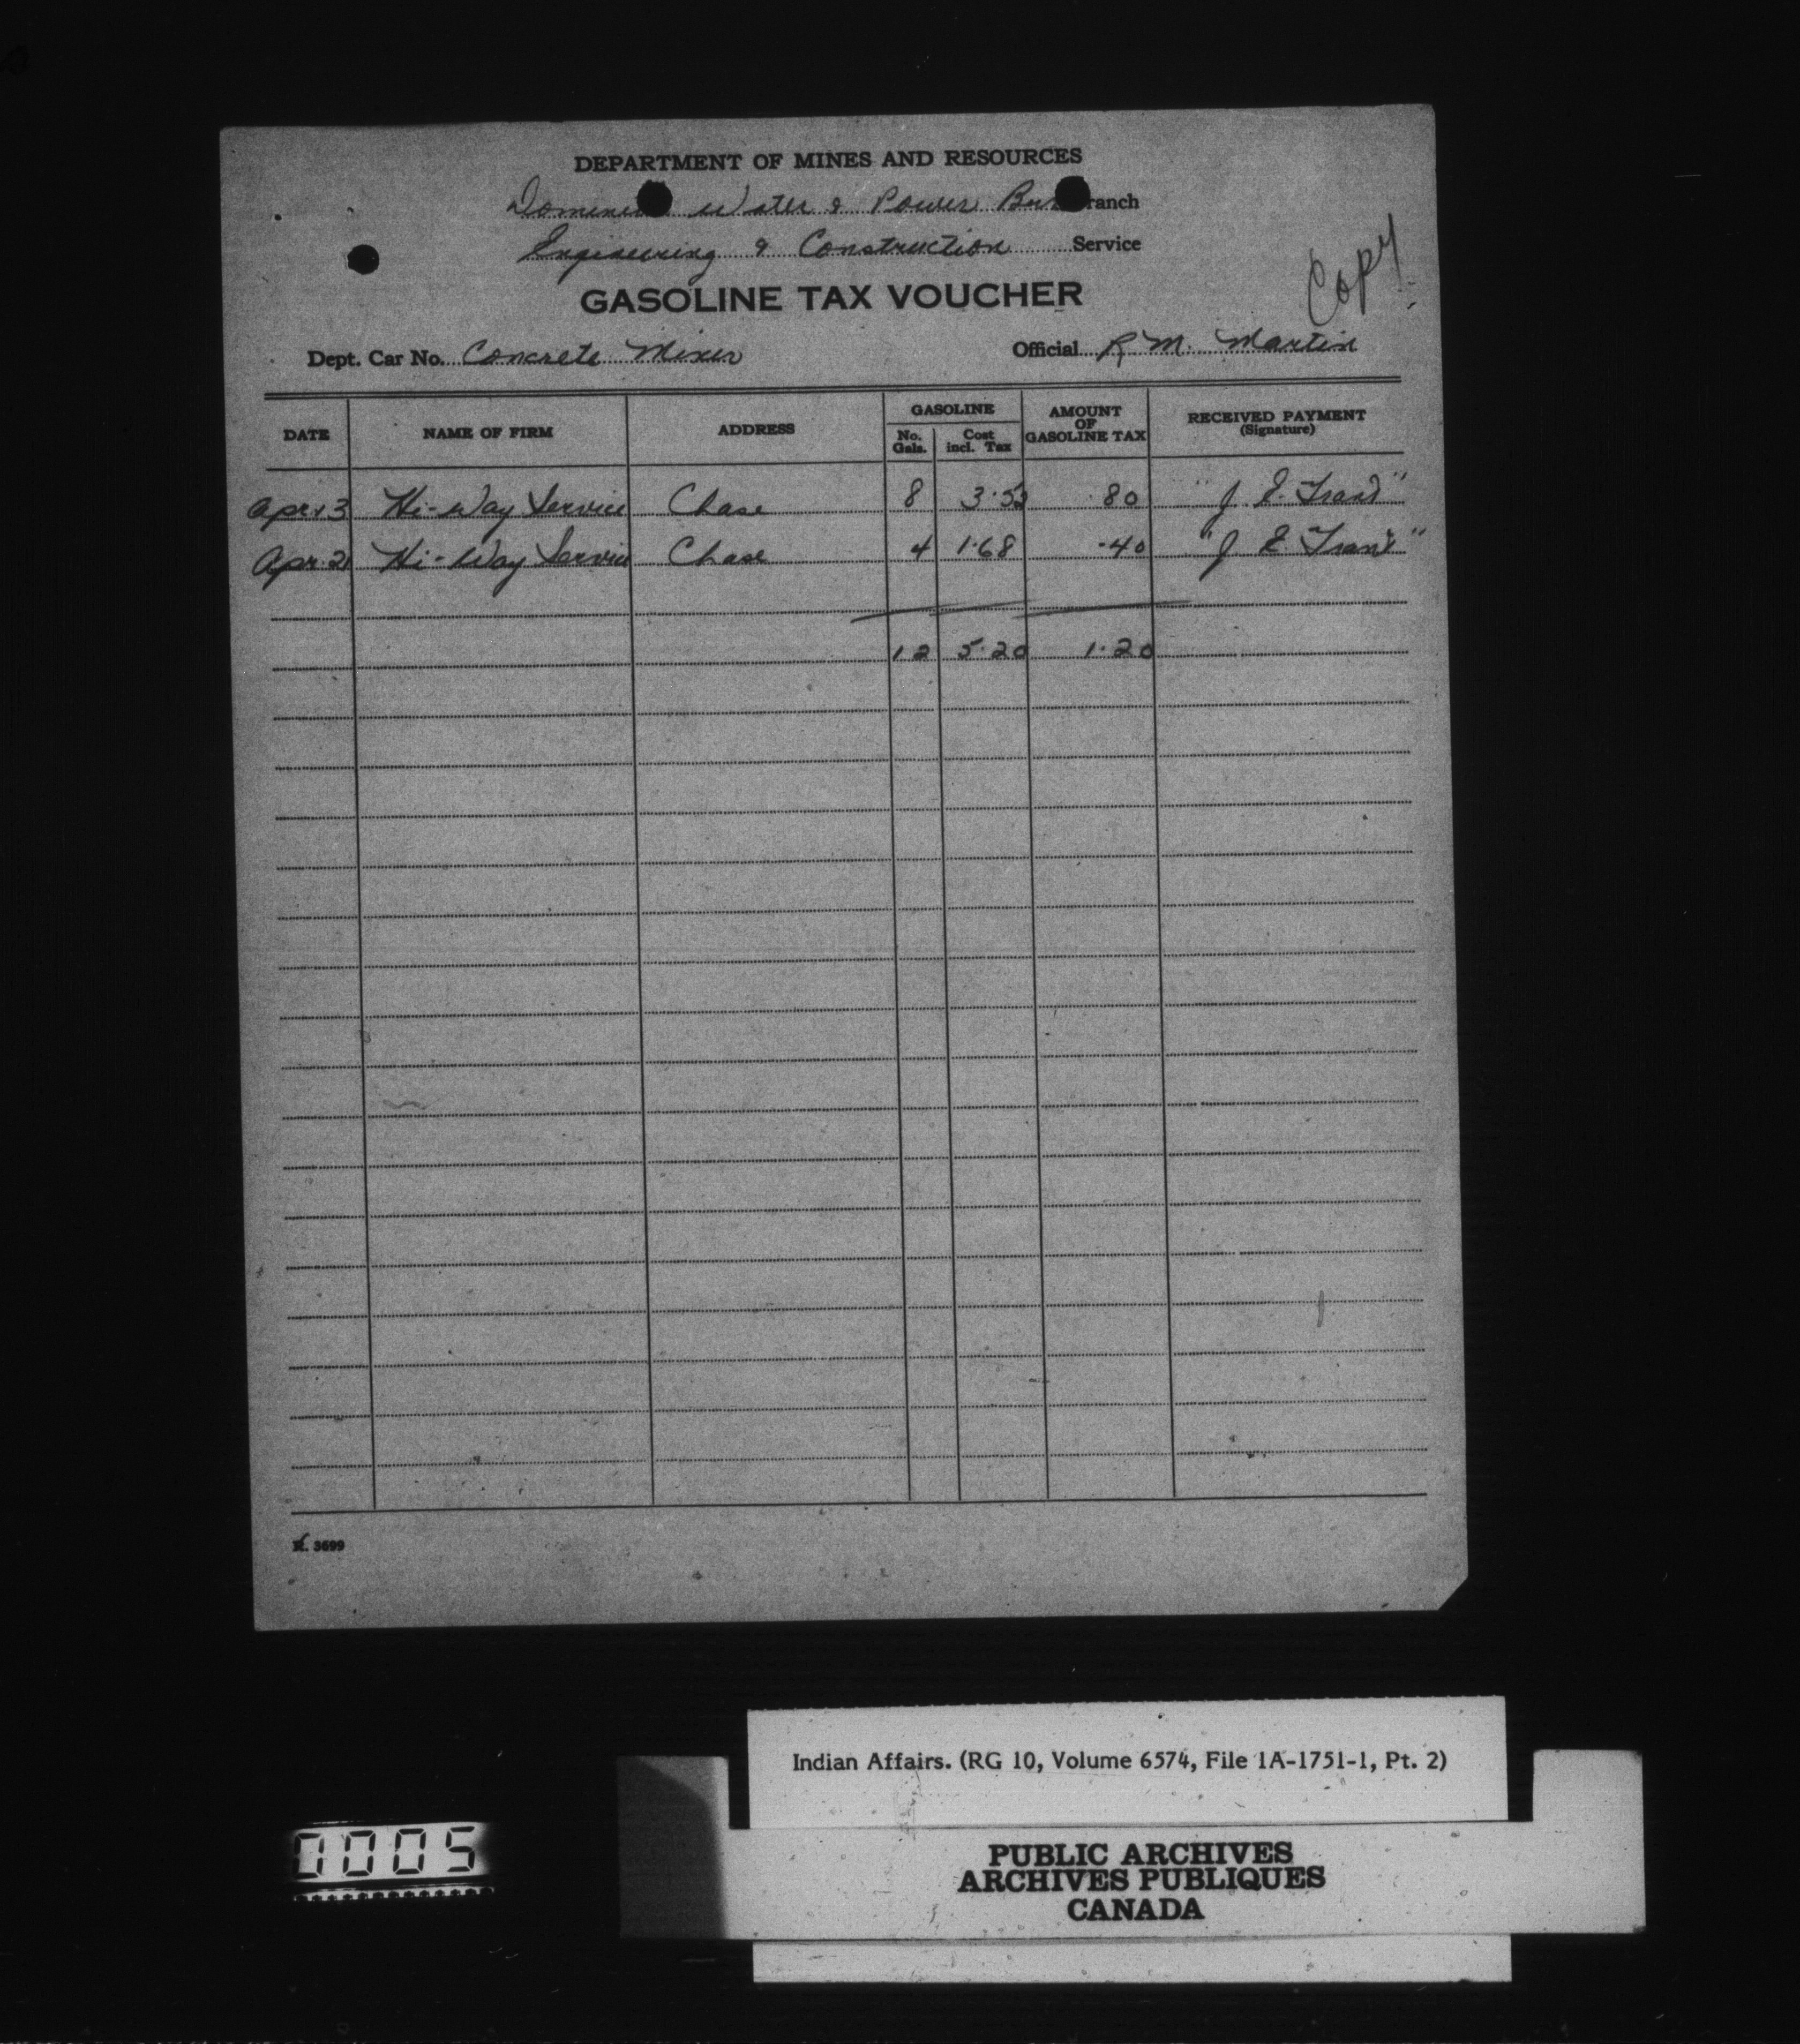 DEPARTMENT OF MINES AND RESOURCES
Water & Power Branch
Engineering & Construction Service
Copy
GASOLINE TAX VOUCHER
Dept. Car No. Concrete Mixer Official R M. Martin
DATE NAME OF FIRM ADDRESS GASOLINE No. Gals. Cost incl. Tax AMOUNT OF GASOLINE TAX RECEIVED PAYMENT (Signature)
Apr. 13 Hi-Way Service Chase 8 3.52 .80 "J. E.
Apr. 21 Hi-Way Service Chase 4 1.68 .40 "J. E.
12 5.20 1.20
R. 3699
Indian Affairs. (RG 10, Volume 6574, File 1A-1751-1, Pt. 2)
0005
PUBLIC ARCHIVES
ARCHIVES PUBLIQUES
CANADA